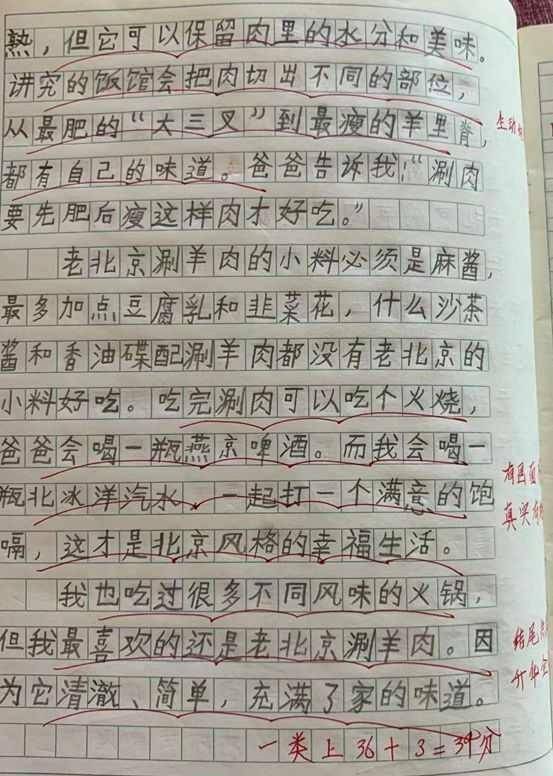 熟，但它可以保留肉里的水分和美味。
讲究的饭馆会把肉切出不同的部位，
从最肥的“大三叉”到最瘦的羊里脊，
生动
都有自己的味道。爸爸告诉我：“涮肉
要先肥后瘦这样肉才好吃。”
老北京涮羊肉的小料必须是麻酱，
最多加点豆腐乳和韭菜花，什么沙茶
酱和香油碟配涮羊肉都没有老北京的
小料好吃。吃完涮肉可以吃个火烧，
爸爸会喝一瓶燕京啤酒。而我会喝一
有画面
瓶北冰洋汽水，一起打一个满意的饱
真实
嗝，这才是北京风格的幸福生活。
我也吃过很多不同风味的火锅，
但我最喜欢的还是老北京涮羊肉。因
结尾
为它清澈、简单，充满了家的味道。
升华
一类上 36+3=39分